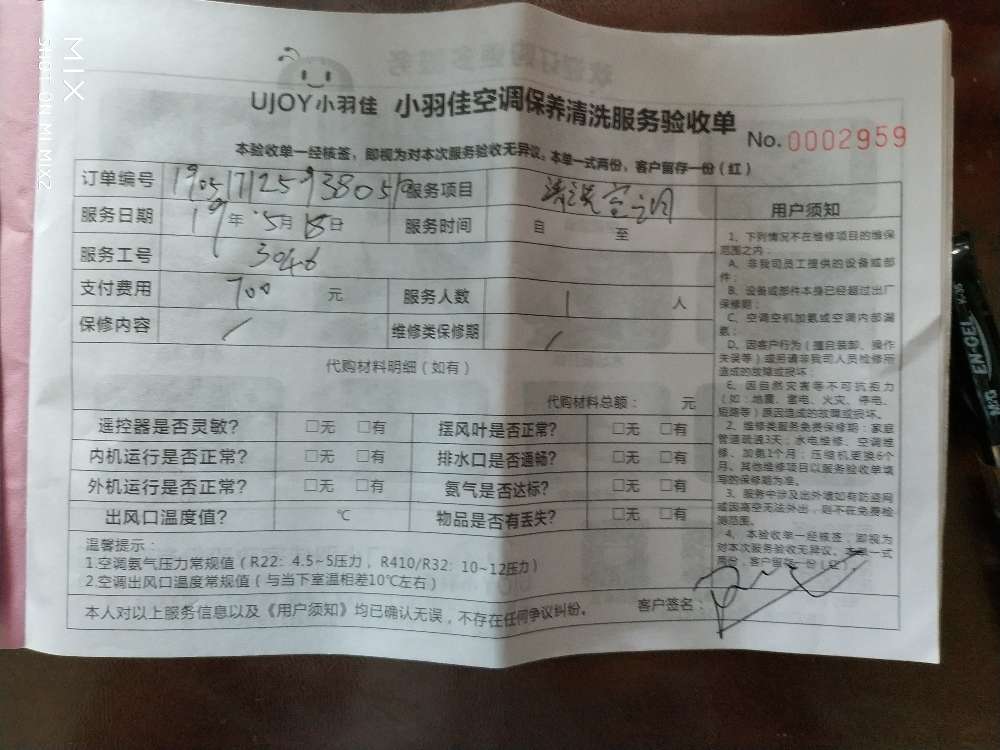 UJOY小羽佳 小羽佳空调保养清洗服务验收单
No. 0002959
本验收单一经核签，即视为对本次服务验收无异议。本单一式两份，客户留存一份（红）
订单编号 服务项目 清洗空调
服务日期 19年5月18日 服务时间 自 至
服务工号 3046
支付费用 700 元 服务人数 1 人
保修内容 / 维修类保修期 /
代购材料明细（如有）
代购材料总额： 元
遥控器是否灵敏？ □无 □有 摆风叶是否正常？ □无 □有
内机运行是否正常？ □无 □有 排水口是否通畅？ □无 □有
外机运行是否正常？ □无 □有 氨气是否达标？ □无 □有
出风口温度值？ ℃ 物品是否有丢失？ □无 □有
温馨提示：
1.空调氨气压力常规值（R22：4.5~5压力，R410/R32：10~12压力）
2.空调出风口温度常规值（与当下室温相差10℃左右）
本人对以上服务信息以及《用户须知》均已确认无误，不存在任何争议纠纷。
客户签名：
用户须知
1、下列情况不在维修项目的维保
范围之内：
A、非我司员工提供的设备或部
件；
B、设备或部件本身已经超过出厂
保修期；
C、空调空机加氨或空调内部漏
氨；
D、因客户行为（擅自装卸、操作
失误等）或后请非我司人员检修所
造成的故障或损坏；
6、因自然灾害等不可抗拒力
（如：地震、雷电、火灾、停电、
短路等）原因造成的故障或损坏。
2、维修类服务免费保修期：家庭
管道疏通3天；水电维修、空调维
修、加氨1个月；压缩机更换6个
月。其他维修项目以服务验收单填
写的保修期为准。
3、服务中涉及出外墙如有防盗网
或因高空无法外出，则不在免费检
测范围。
4、本验收单一经核签，即视为
对本次服务验收无异议。本单一式
两份，客户留存一份（红）
MIX
SHOT ON MI MIX2